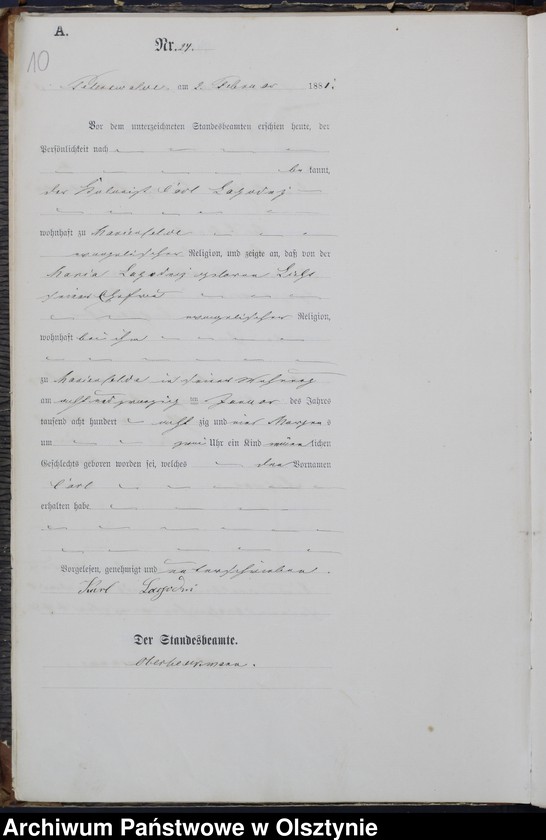 A.
10
Nr. 29.
am 2. Februar 1881.
Vor dem unterzeichneten Standesbeamten erschien heute, der
Persönlichkeit nach
bekannt,
der Carl
wohnhaft zu Marienfelde
evangelischer Religion, und zeigte an, daß von der
Maria geborenen
seiner Ehefrau
evangelischer Religion,
wohnhaft bei ihm
zu Marienfelde in seiner Wohnung
am achtundzwanzigsten Januar des Jahres
tausend acht hundert achtzig und eins Morgens
um zwei Uhr ein Kind männlichen
Geschlechts geboren worden sei, welches den Vornamen
Carl
erhalten habe
Vorgelesen, genehmigt und unterschrieben.
Karl
Der Standesbeamte.
Archiwum Państwowe w Olsztynie